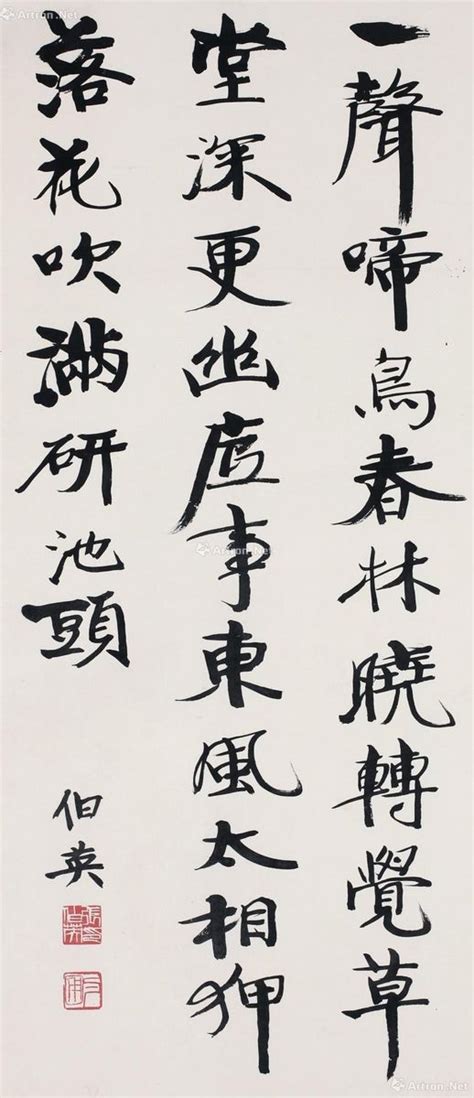 一聲啼鳥春林曉轉覺草
堂深更幽底事東風太相狎
落花吹滿研池頭
伯英
Artron.Net
Artron.Net
Artron.Net